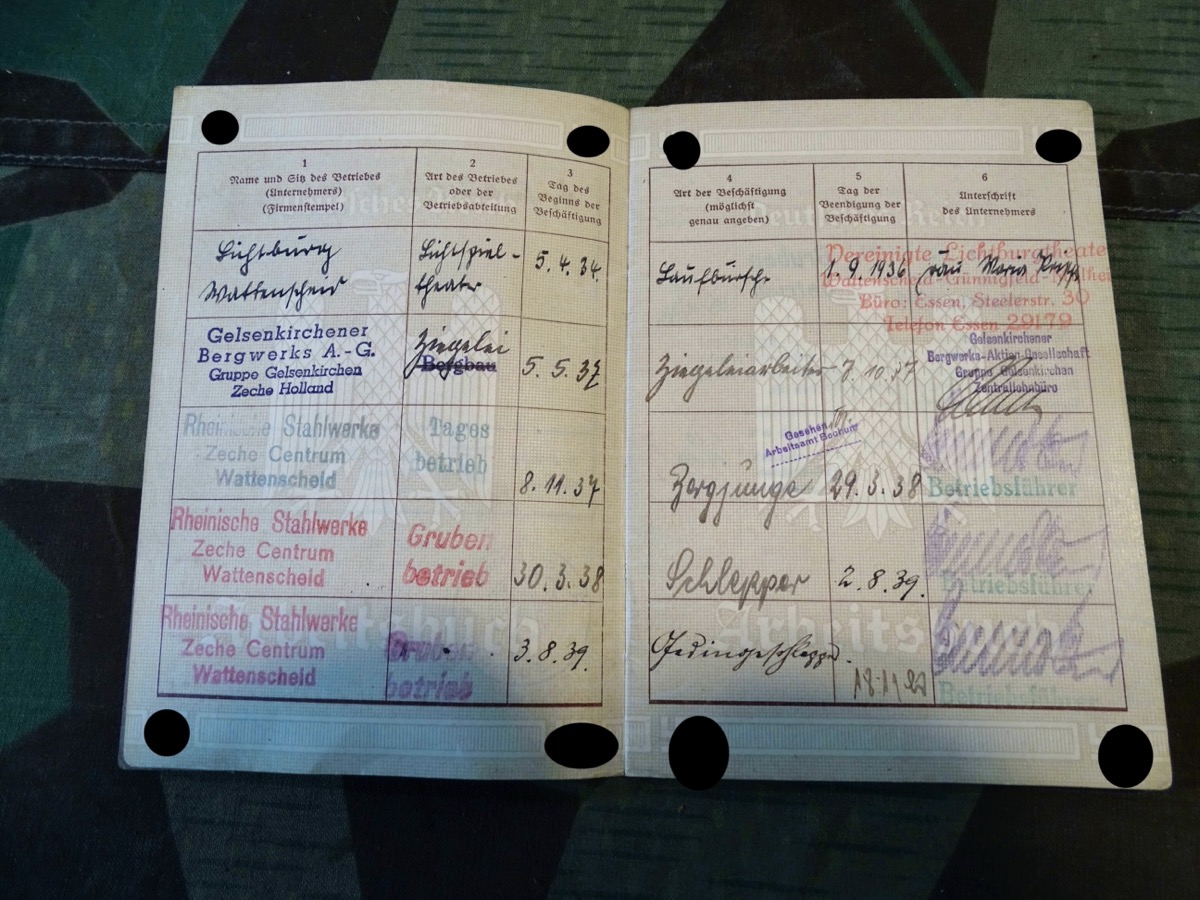 1
Name und Sitz des Betriebes
(Unternehmers)
(Firmenstempel)
2
Art des Betriebes
oder der
Betriebsabteilung
3
Tag des
Beginns der
Beschäftigung
Lichtburg
Wattenscheid
Lichtspiel-
theater
5.4.34.
Gelsenkirchener
Bergwerks A.-G.
Gruppe Gelsenkirchen
Zeche Holland
Ziegelei
Bergbau
5.5.37
Rheinische Stahlwerke
Zeche Centrum
Wattenscheid
Tages
betrieb
8.11.37
Rheinische Stahlwerke
Zeche Centrum
Wattenscheid
Gruben
betrieb
30.3.38
Rheinische Stahlwerke
Zeche Centrum
Wattenscheid
Gruben
betrieb
3.8.39.
Arbeitsbuch
4
Art der Beschäftigung
(möglichst
genau angeben)
5
Tag der
Beendigung der
Beschäftigung
6
Unterschrift
des Unternehmers
Deutsches Reich
Laufbursche
1.9.1936
Maria
Vereinigte Lichtburgtheater
Wattenscheid-Günnigfeld-
Büro: Essen, Steelerstr. 30
Telefon Essen 29179
Ziegeleiarbeiter
7.10.37
Gelsenkirchener
Bergwerks-Aktien-Gesellschaft
Gruppe Gelsenkirchen
Zentrallohnbüro
Gesehen
Arbeitsamt Bochum
Bergjunge
29.3.38
Betriebsführer
Schlepper
2.8.39.
Betriebsführer
Gedingeschlepper.
Betriebsführer
Arbeitsbuch